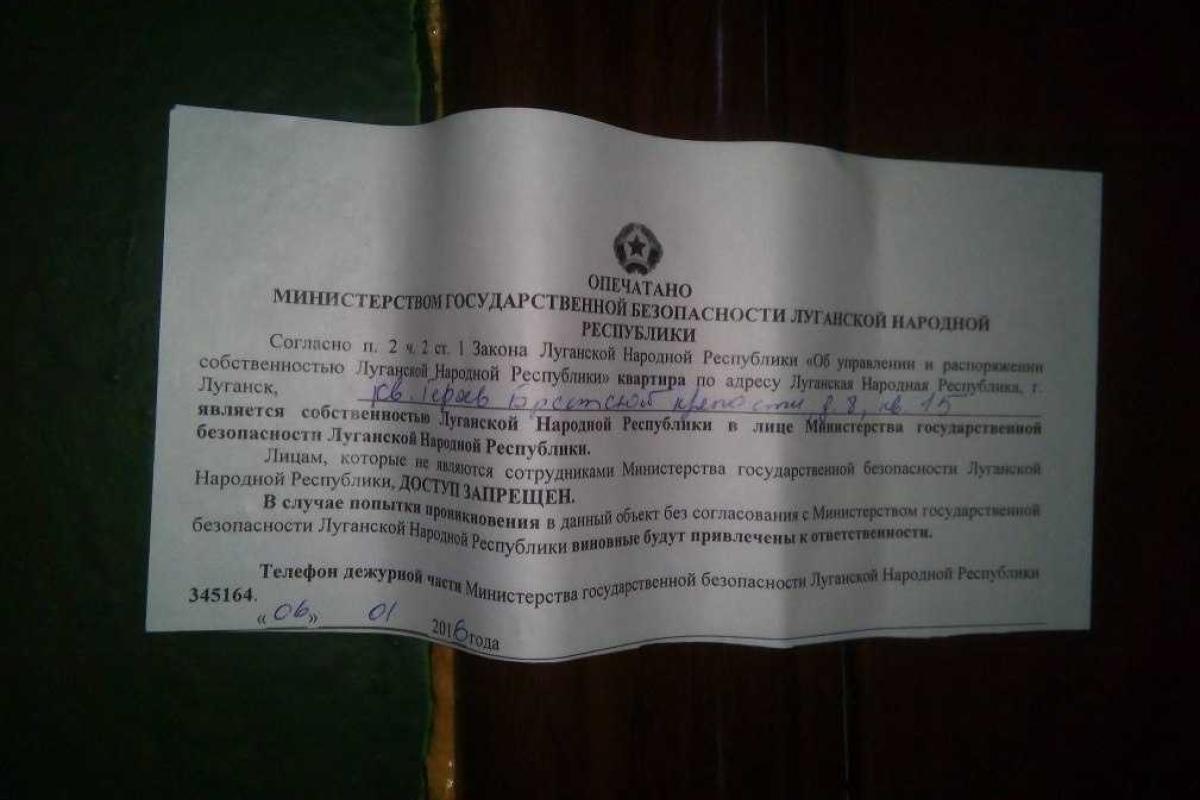 ОПЕЧАТАНО
МИНИСТЕРСТВОМ ГОСУДАРСТВЕННОЙ БЕЗОПАСНОСТИ ЛУГАНСКОЙ НАРОДНОЙ
РЕСПУБЛИКИ
Согласно п. 2 ч. 2 ст. 1 Закона Луганской Народной Республики «Об управлении и распоряжении
собственностью Луганской Народной Республики» квартира по адресу Луганская Народная Республика, г.
Луганск, кв. Героев Брестской крепости, д. 8, кв. 15
является собственностью Луганской Народной Республики в лице Министерства государственной
безопасности Луганской Народной Республики.
Лицам, которые не являются сотрудниками Министерства государственной безопасности Луганской
Народной Республики, ДОСТУП ЗАПРЕЩЕН.
В случае попытки проникновения в данный объект без согласования с Министерством государственной
безопасности Луганской Народной Республики виновные будут привлечены к ответственности.
Телефон дежурной части Министерства государственной безопасности Луганской Народной Республики
345164.
«06» 01 2016 года